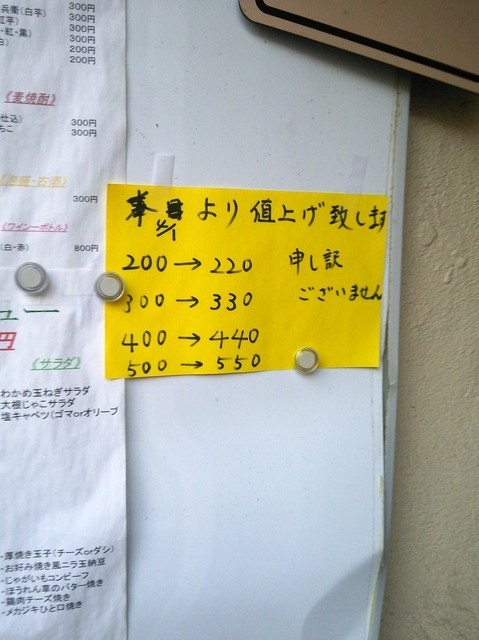 兵衛(白芋) 300円
芋) 300円
・紅・黒) 300円
白) 300円
200円
200円
《麦焼酎》
仕込) 300円
ちこ 300円
お酒》
300円
《ワインーボトル》
(白・赤) 800円
ュー
円
《サラダ》
わかめ玉ねぎサラダ
大根じゃこサラダ
塩キャベツ(ゴマorオリーブ
・厚焼き玉子(チーズorダシ)
・お好み焼き風ニラ玉納豆
・じゃがいもコンビーフ
・ほうれん草のバター焼き
・鶏肉チーズ焼き
・メカジキひと口焼き
より値上げ致します
200→220
300→330
400→440
500→550
申し訳
ございません